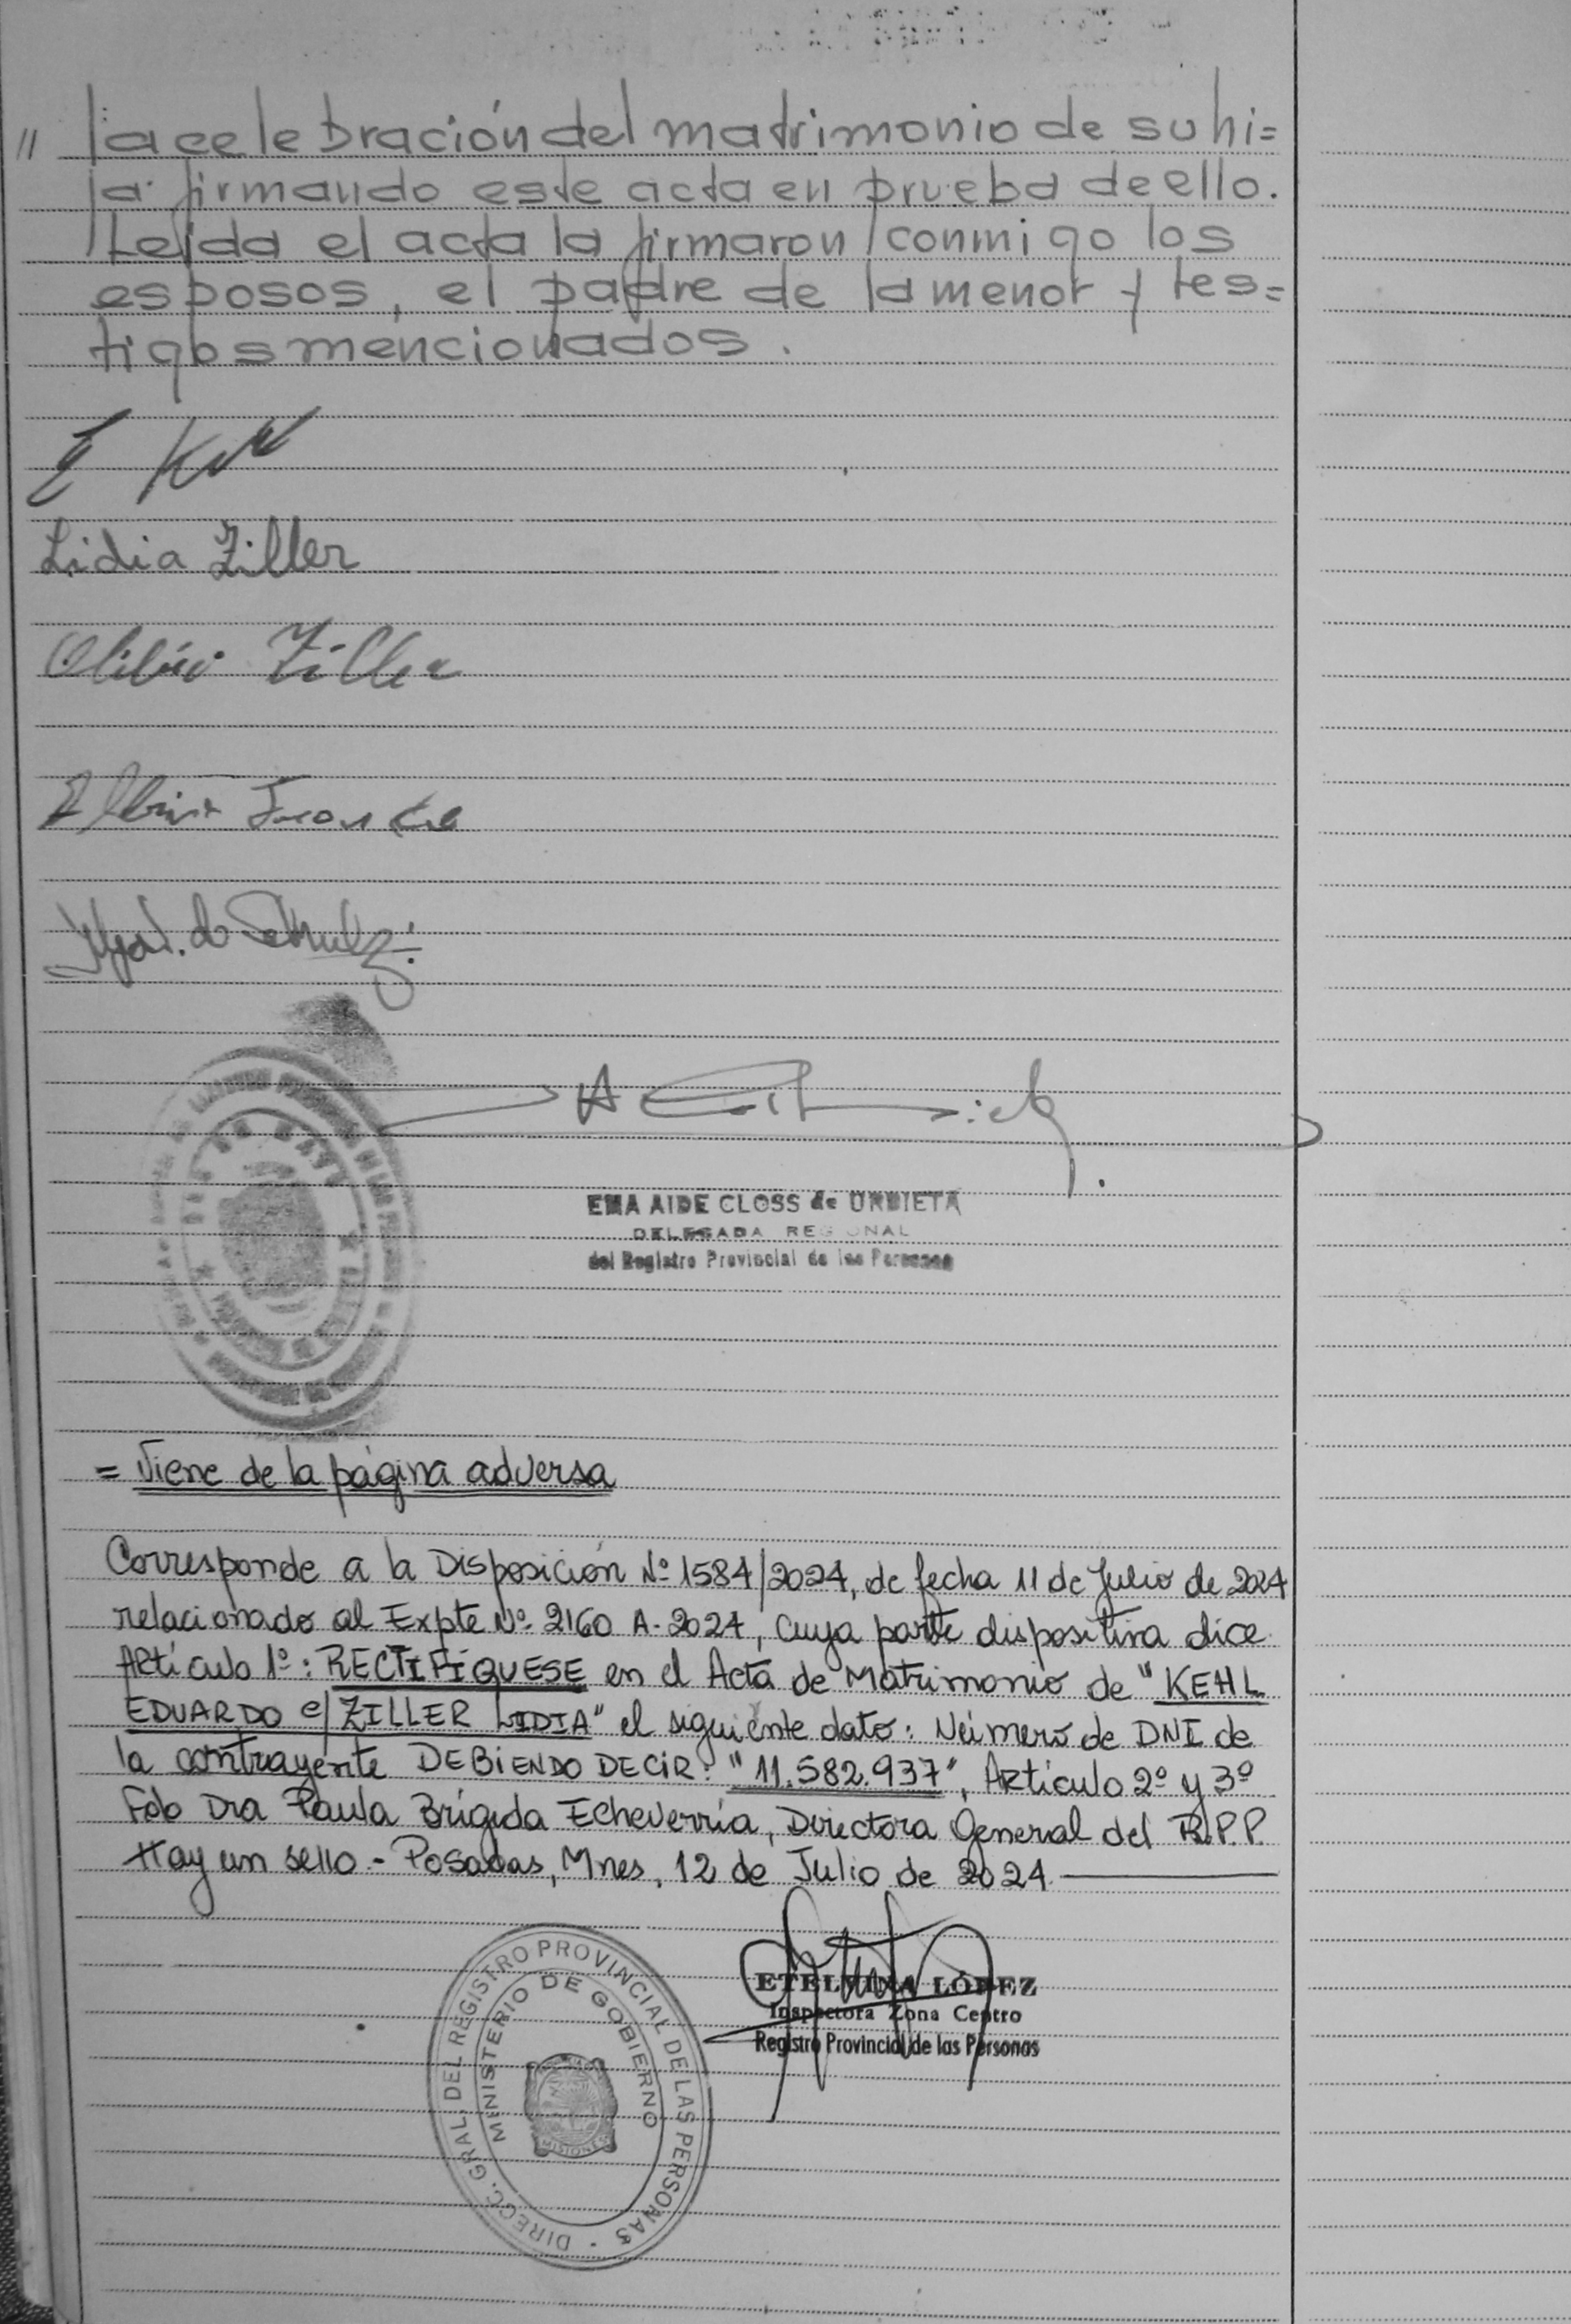 // la celebración del matrimonio de su hi=
ja firmando este acta en prueba de ello.
Leida el acta la firmaron conmigo los
esposos, el padre de la menor y tes=
tigos mencionados.
Lidia Ziller
Ziller
EMA AIDE CLOSS de URRIETA
DELEGADA REGIONAL
del Registro Provincial de las Personas
= Viene de la página adversa
Corresponde a la Disposición Nº 1584/2024, de fecha 11 de Julio de 2024
relacionado al Expte Nº 2160 A-2024, cuya parte dispositiva dice
Artículo 1º: RECTIFÍQUESE en el Acta de Matrimonio de "KEHL
EDUARDO c/ ZILLER LIDIA" el siguiente dato: Número de DNI de
la contrayente DEBIENDO DECIR: "11.582.937", Artículo 2º y 3º
Fdo Dra Paula Brígida Echeverría, Directora General del R.P.P.
Hay un sello - Posadas, Mnes, 12 de Julio de 2024
ETELVINA LÓPEZ
Inspectora Zona Centro
Registro Provincial de las Personas
DIRECC. GRAL. DEL REGISTRO PROVINCIAL DE LAS PERSONAS
MINISTERIO DE GOBIERNO
MISIONES